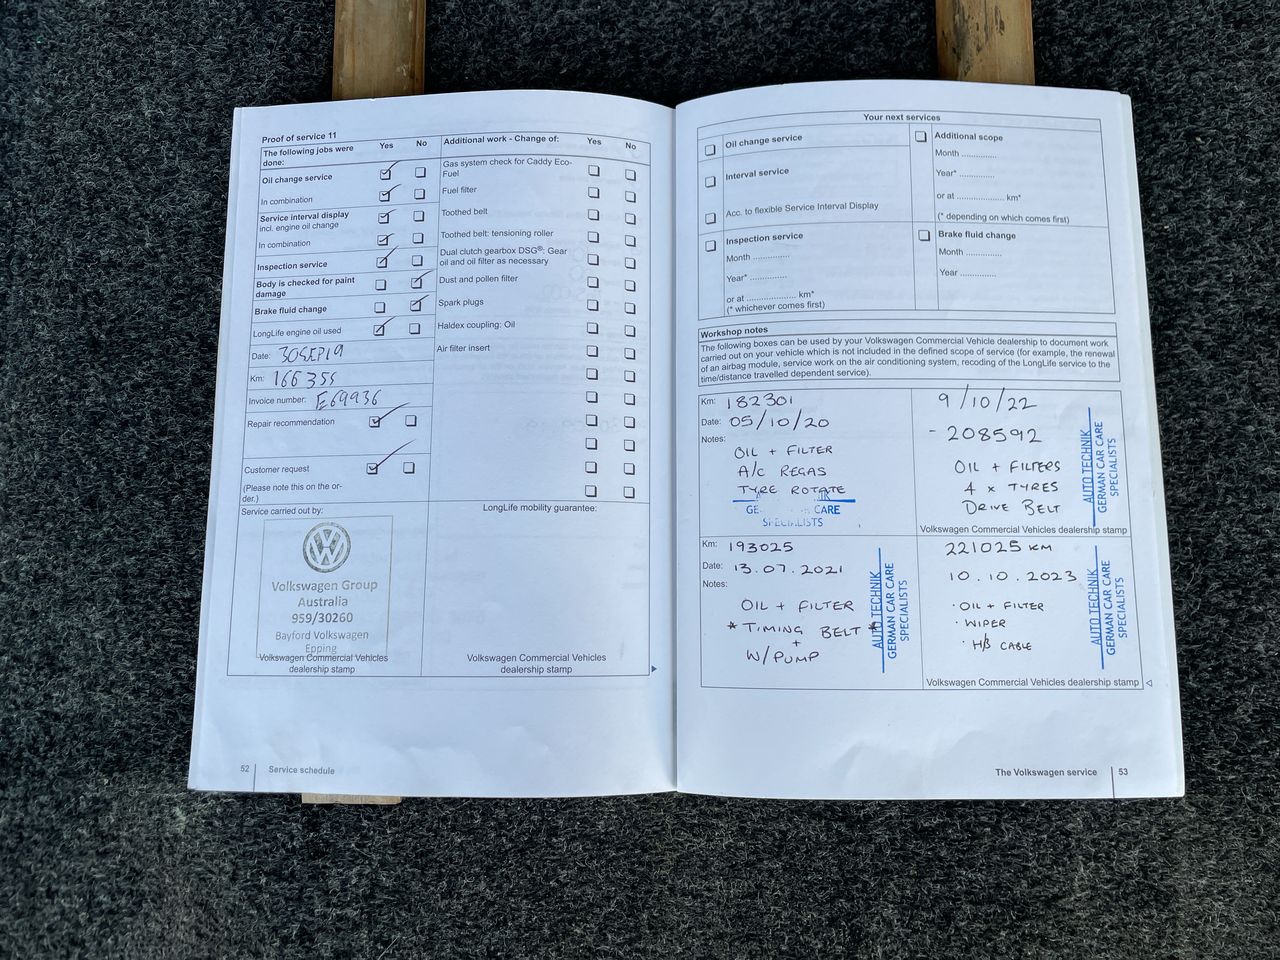 Proof of service 11
The following jobs were done: Yes No
Oil change service
In combination
Service interval display
incl. engine oil change
In combination
Inspection service
Body is checked for paint
damage
Brake fluid change
LongLife engine oil used
Date: 30SEP19
Km: 166355
Invoice number: E69936
Repair recommendation
Customer request
(Please note this on the or-
der.)
Service carried out by:
Volkswagen Group
Australia
959/30260
Bayford Volkswagen
Epping
Volkswagen Commercial Vehicles
dealership stamp
Additional work - Change of: Yes No
Gas system check for Caddy Eco-
Fuel
Fuel filter
Toothed belt
Toothed belt: tensioning roller
Dual clutch gearbox DSG®: Gear
oil and oil filter as necessary
Dust and pollen filter
Spark plugs
Haldex coupling: Oil
Air filter insert
LongLife mobility guarantee:
Volkswagen Commercial Vehicles
dealership stamp
52 Service schedule
Your next services
Oil change service
Interval service
Acc. to flexible Service Interval Display
Inspection service
Month ..............
Year* ..............
or at .................... km*
(* whichever comes first)
Additional scope
Month ..............
Year* ..............
or at .................... km*
(* depending on which comes first)
Brake fluid change
Month ..............
Year ..............
Workshop notes
The following boxes can be used by your Volkswagen Commercial Vehicle dealership to document work
carried out on your vehicle which is not included in the defined scope of service (for example, the renewal
of an airbag module, service work on the air conditioning system, recoding of the LongLife service to the
time/distance travelled dependent service).
Km: 182301
Date: 05/10/20
Notes:
OIL + FILTER
A/C REGAS
TYRE ROTATE
CARE
SPECIALISTS
9/10/22
- 208592
OIL + FILTERS
4 x TYRES
DRIVE BELT
AUTO TECHNIK
GERMAN CAR CARE
SPECIALISTS
Volkswagen Commercial Vehicles dealership stamp
Km: 193025
Date: 13.07.2021
Notes:
OIL + FILTER
* TIMING BELT *
+
W/PUMP
AUTO TECHNIK
GERMAN CAR CARE
SPECIALISTS
221025 KM
10.10.2023
· OIL + FILTER
· WIPER
· H/B CABLE
AUTO TECHNIK
GERMAN CAR CARE
SPECIALISTS
Volkswagen Commercial Vehicles dealership stamp
The Volkswagen service 53